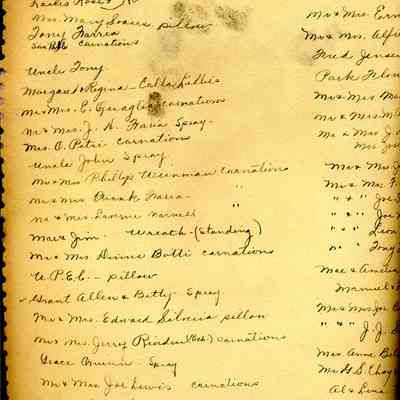 Mrs. Mary Soares pillow
Tony Farria
carnations
Uncle Tony
Margaret & Regina - Calla Lillies
Mr & Mrs. E. Quaglia carnations
Mr & Mrs. J. H. Faria Spray.
Mrs. O. Petri carnations
Uncle John Spray
Mr & Mrs Phillip Weinman Carnations
Mr & Mrs Frank Faria "
Mr & Mrs
Mae & Jim. Wreath - (standing)
Mr & Mrs Dinnie Botti carnations
U.P.E.C. - pillow
Grant Allen & Betty - Spray
Mr & Mrs. Edward Silveria pillow
Mr & Mrs Jerry Riordan carnations
Grace - Spray
Mr & Mrs Joe Lewis carnations
Mr & Mrs. Ern
Mr & Mrs. Alfr
Fred Jensen
Park Flow
Mr & Mrs
Mr & Mrs. M
Mr & Mrs J.
Mr & Mrs. J
Mr & Mrs.
" & " Joe
" & " Joe
" & " Leon
" " Tony
Mae & Amelia
Manuel
Mr & Mrs Joe
" & " J. J.
Mrs Anne
Mr & S. Chay
Al & Lena